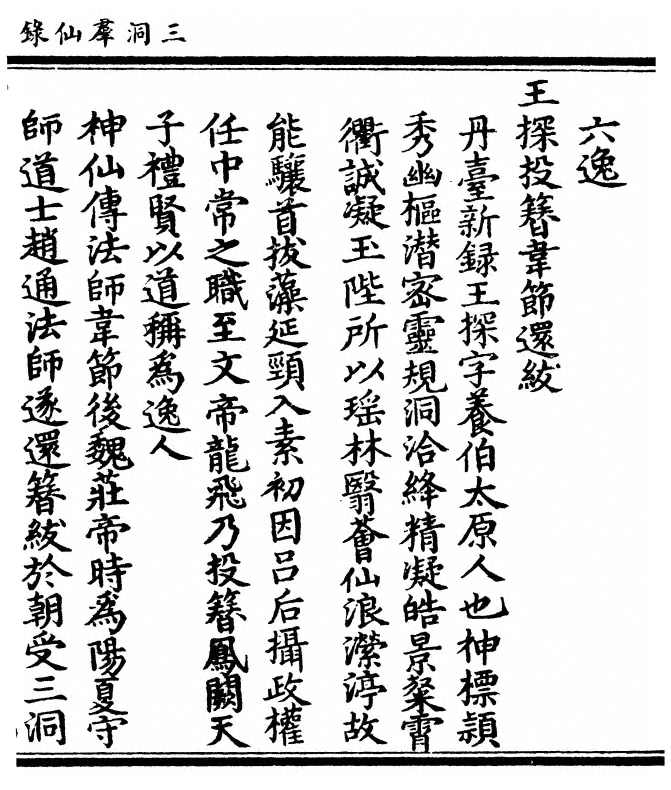 三洞羣仙錄
六逸
王探投簪韋節還紱
丹臺新録王探字養伯太原人也神標頴
秀幽樞潛密靈規洞洽絳精凝皓景粲霄
衢誠凝玉陛所以瑶林翳薈仙浪瀠渟故
能驤首拔藻延頸入素初因吕后攝政權
任中常之職至文帝龍飛乃投簪鳳闕天
子禮賢以道稱爲逸人
神仙傳法師韋節後魏莊帝時爲陽夏守
師道士趙通法師遂還簪紱於朝受三洞